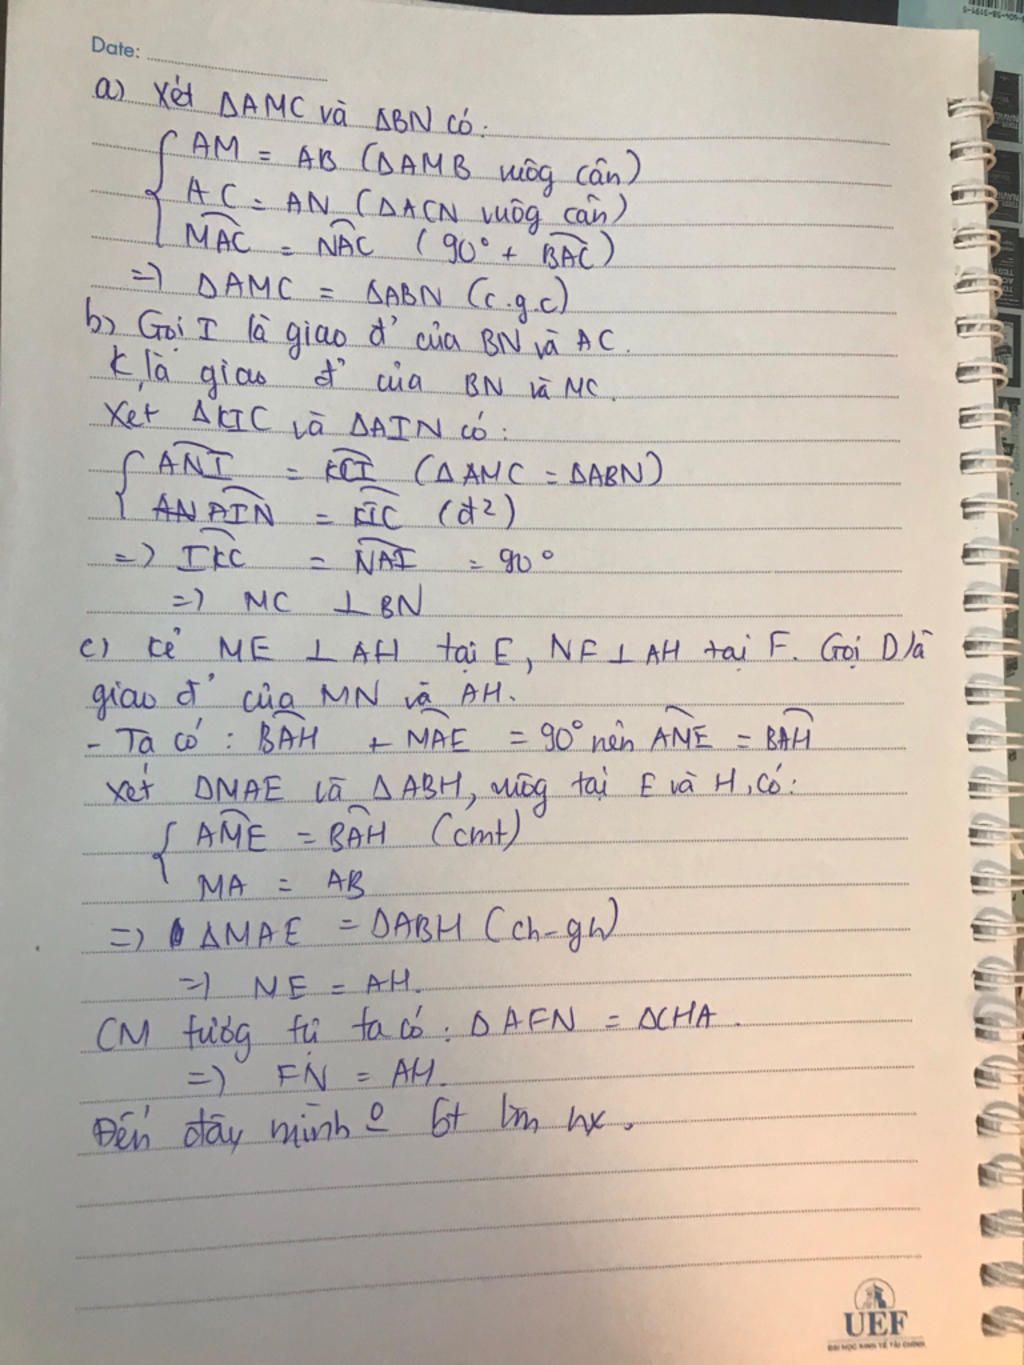 Date:
a) Xét ΔAMC và ΔBN có:
AM = AB (ΔAMB vuôg cân)
AC = AN (ΔACN vuôg cân)
MAC = NAC (90° + BAC)
=> ΔAMC = ΔABN (c.g.c)
b) Gọi I là giao đ' của BN và AC.
K là giao đ' của BN và MC.
Xét ΔKIC và ΔAIN có:
ANI = KCI (ΔAMC = ΔABN)
AN AIN = KIC (đ²)
=> IKC = NAI = 90°
=> MC ⊥ BN
c) Kẻ ME ⊥ AH tại E, NF ⊥ AH tại F. Gọi D là
giao đ' của MN và AH.
- Ta có: BAH + MAE = 90° nên AME = BAH
Xét ΔMAE và ΔABH, vuôg tại E và H, có:
AME = BAH (cmt)
MA = AB
=> ΔMAE = ΔABH (ch-gn)
=> ME = AH.
CM tươg tự ta có: ΔAFN = ΔCHA.
=> FN = AH.
Đến đây mình 0 bt lm nx.
UEF
ĐẠI HỌC KINH TẾ TÀI CHÍNH